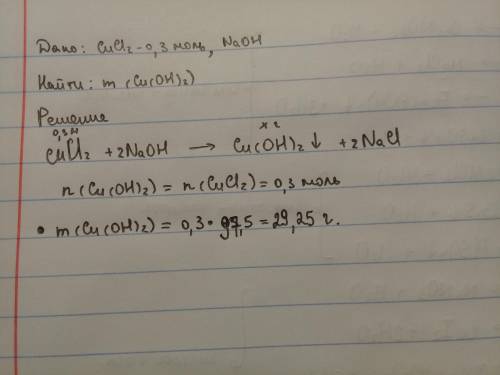 Дано: CuCl2 - 0,3 моль, NaOH
Найти: m (Cu(OH)2)
Решение
0,3м x г
CuCl2 + 2NaOH → Cu(OH)2↓ + 2NaCl
n (Cu(OH)2) = n (CuCl2) = 0,3 моль
• m (Cu(OH)2) = 0,3 • 97,5 = 29,25 г.